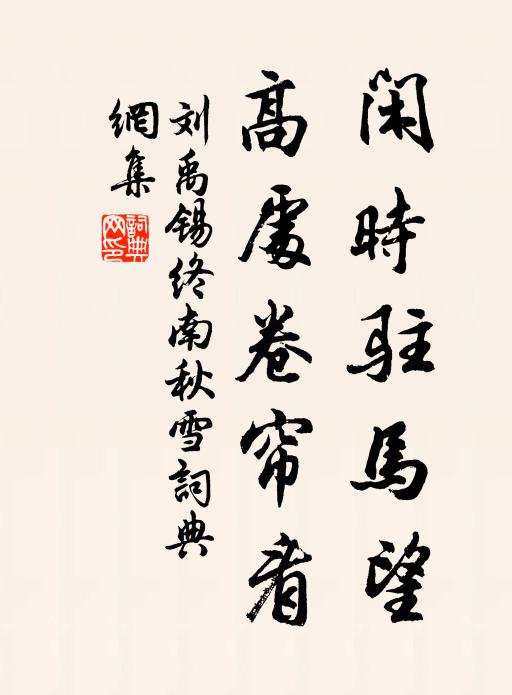 闲時駐馬望
高處卷帘看
刘禹锡终南秋雪詞典
網集
詞典
网印